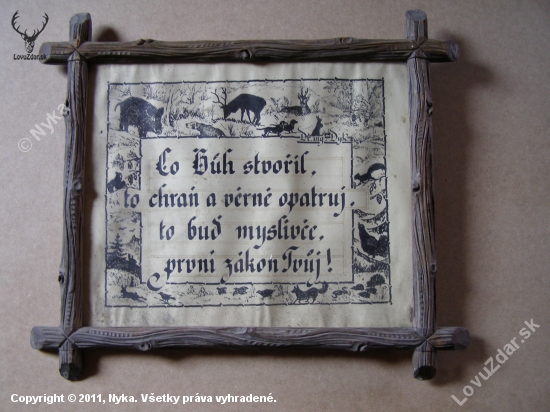 LovuZdar.sk
© Nyka
Co Bůh stvořil,
to chraň a věrně opatruj,
to buď myslivče,
první zákon Tvůj!
LovuZdar.sk
Copyright © 2011, Nyka. Všetky práva vyhradené.